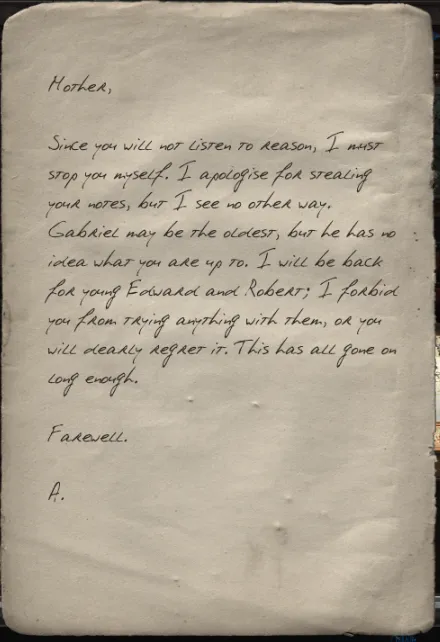 Mother,
Since you will not listen to reason, I must
stop you myself. I apologise for stealing
your notes, but I see no other way.
Gabriel may be the oldest, but he has no
idea what you are up to. I will be back
for young Edward and Robert; I forbid
you from trying anything with them, or you
will dearly regret it. This has all gone on
long enough.
Farewell.
A.